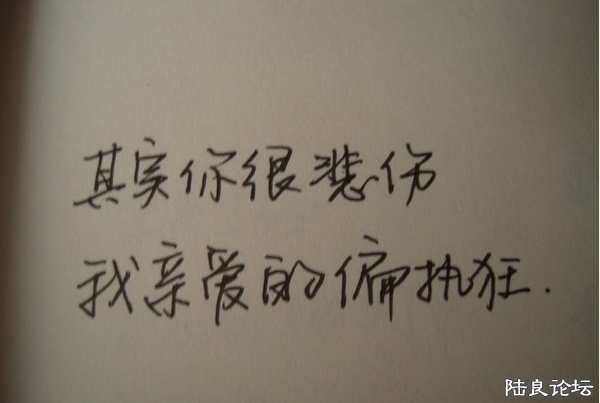 其实你很悲伤
我亲爱的偏执狂.
陆良论坛